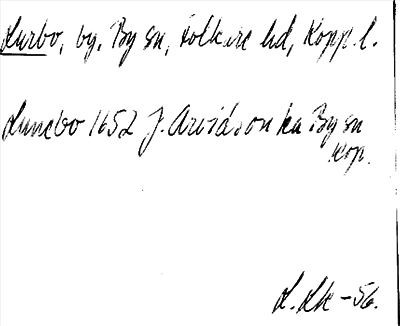 Lurbo, by, By sn, Folkare hd, Kopp. l.
Lunebo 1652 J. Arvidsson ka By sn
Kop.
L. Lk - 56.